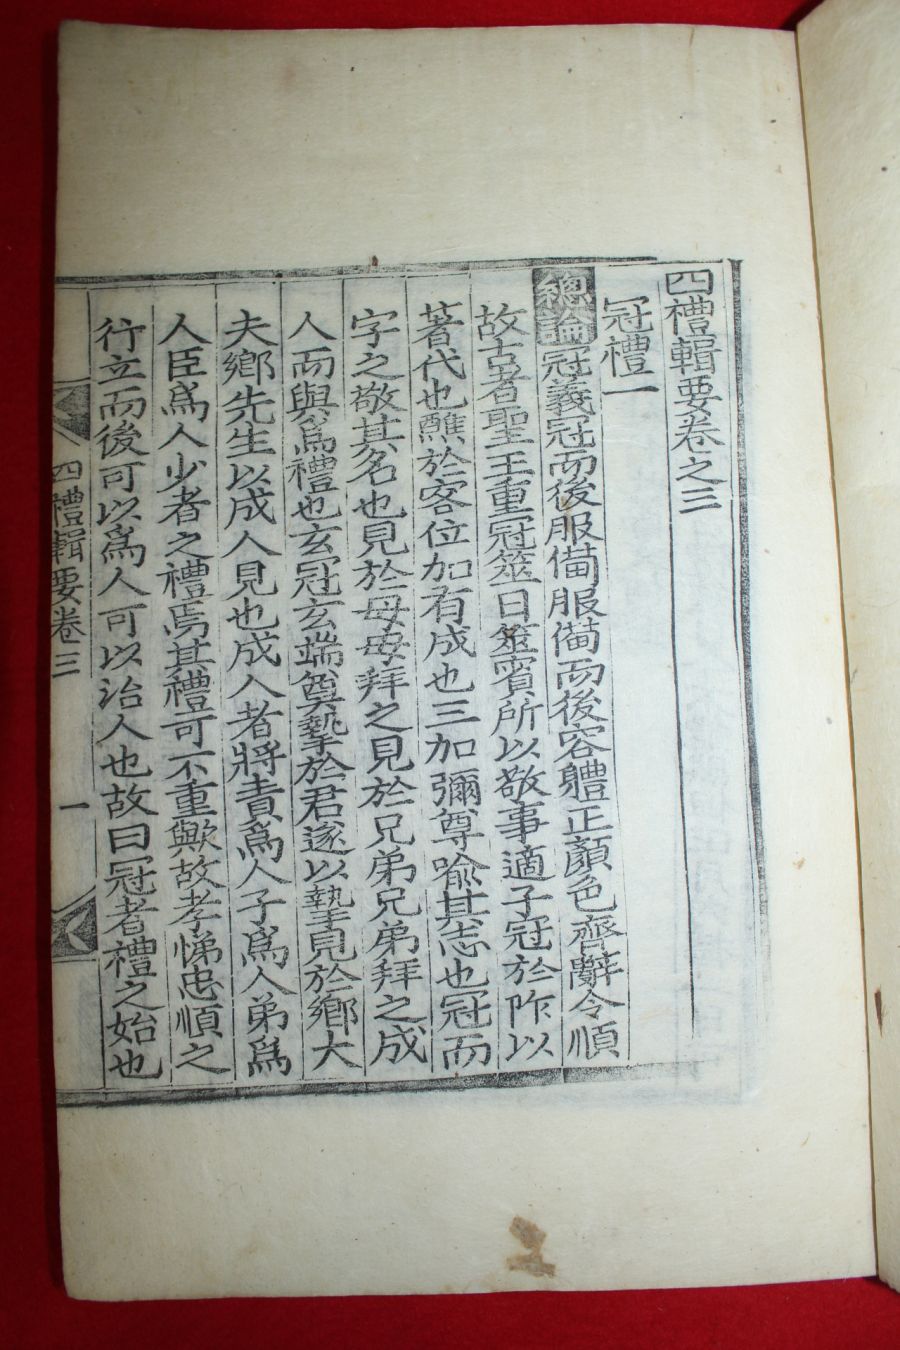 四禮輯要卷之三
冠禮一
總論冠義冠而後服備服備而後容體正顏色齊辭令順
故古者聖王重冠筮日筮賓所以敬事適子冠於阼以
著代也醮於客位加有成也三加彌尊喩其志也冠而
字之敬其名也見於母母拜之見於兄弟兄弟拜之成
人而與爲禮也玄冠玄端奠摯於君遂以摯見於鄉大
夫鄉先生以成人見也成人者將責爲人子爲人弟爲
人臣爲人少者之禮焉其禮可不重歟故孝悌忠順之
行立而後可以爲人可以治人也故曰冠者禮之始也
四禮輯要卷三 一